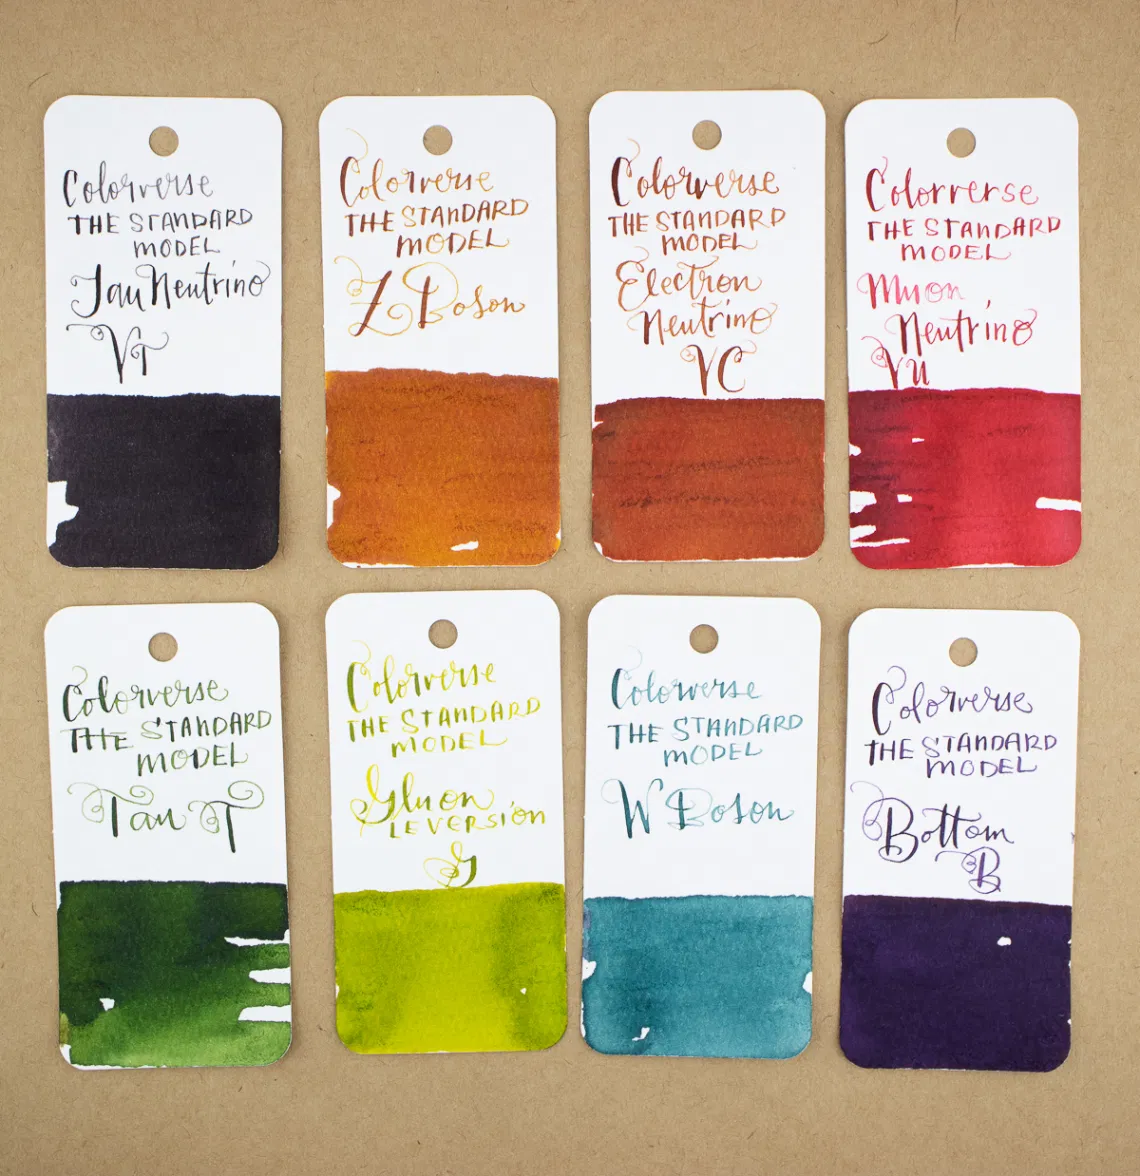 Colorverse
THE STANDARD
MODEL
Tau Neutrino
VT
Colorverse
THE STANDARD
MODEL
Z Boson
Colorverse
THE STANDARD
MODEL
Electron
Neutrino
VC
Colorverse
THE STANDARD
MODEL
Muon
Neutrino
Vu
Colorverse
THE STANDARD
MODEL
Tau T
Colorverse
THE STANDARD
MODEL
Gluon
LEVERSION
G
Colorverse
THE STANDARD
MODEL
W Boson
Colorverse
THE STANDARD
MODEL
Bottom
B